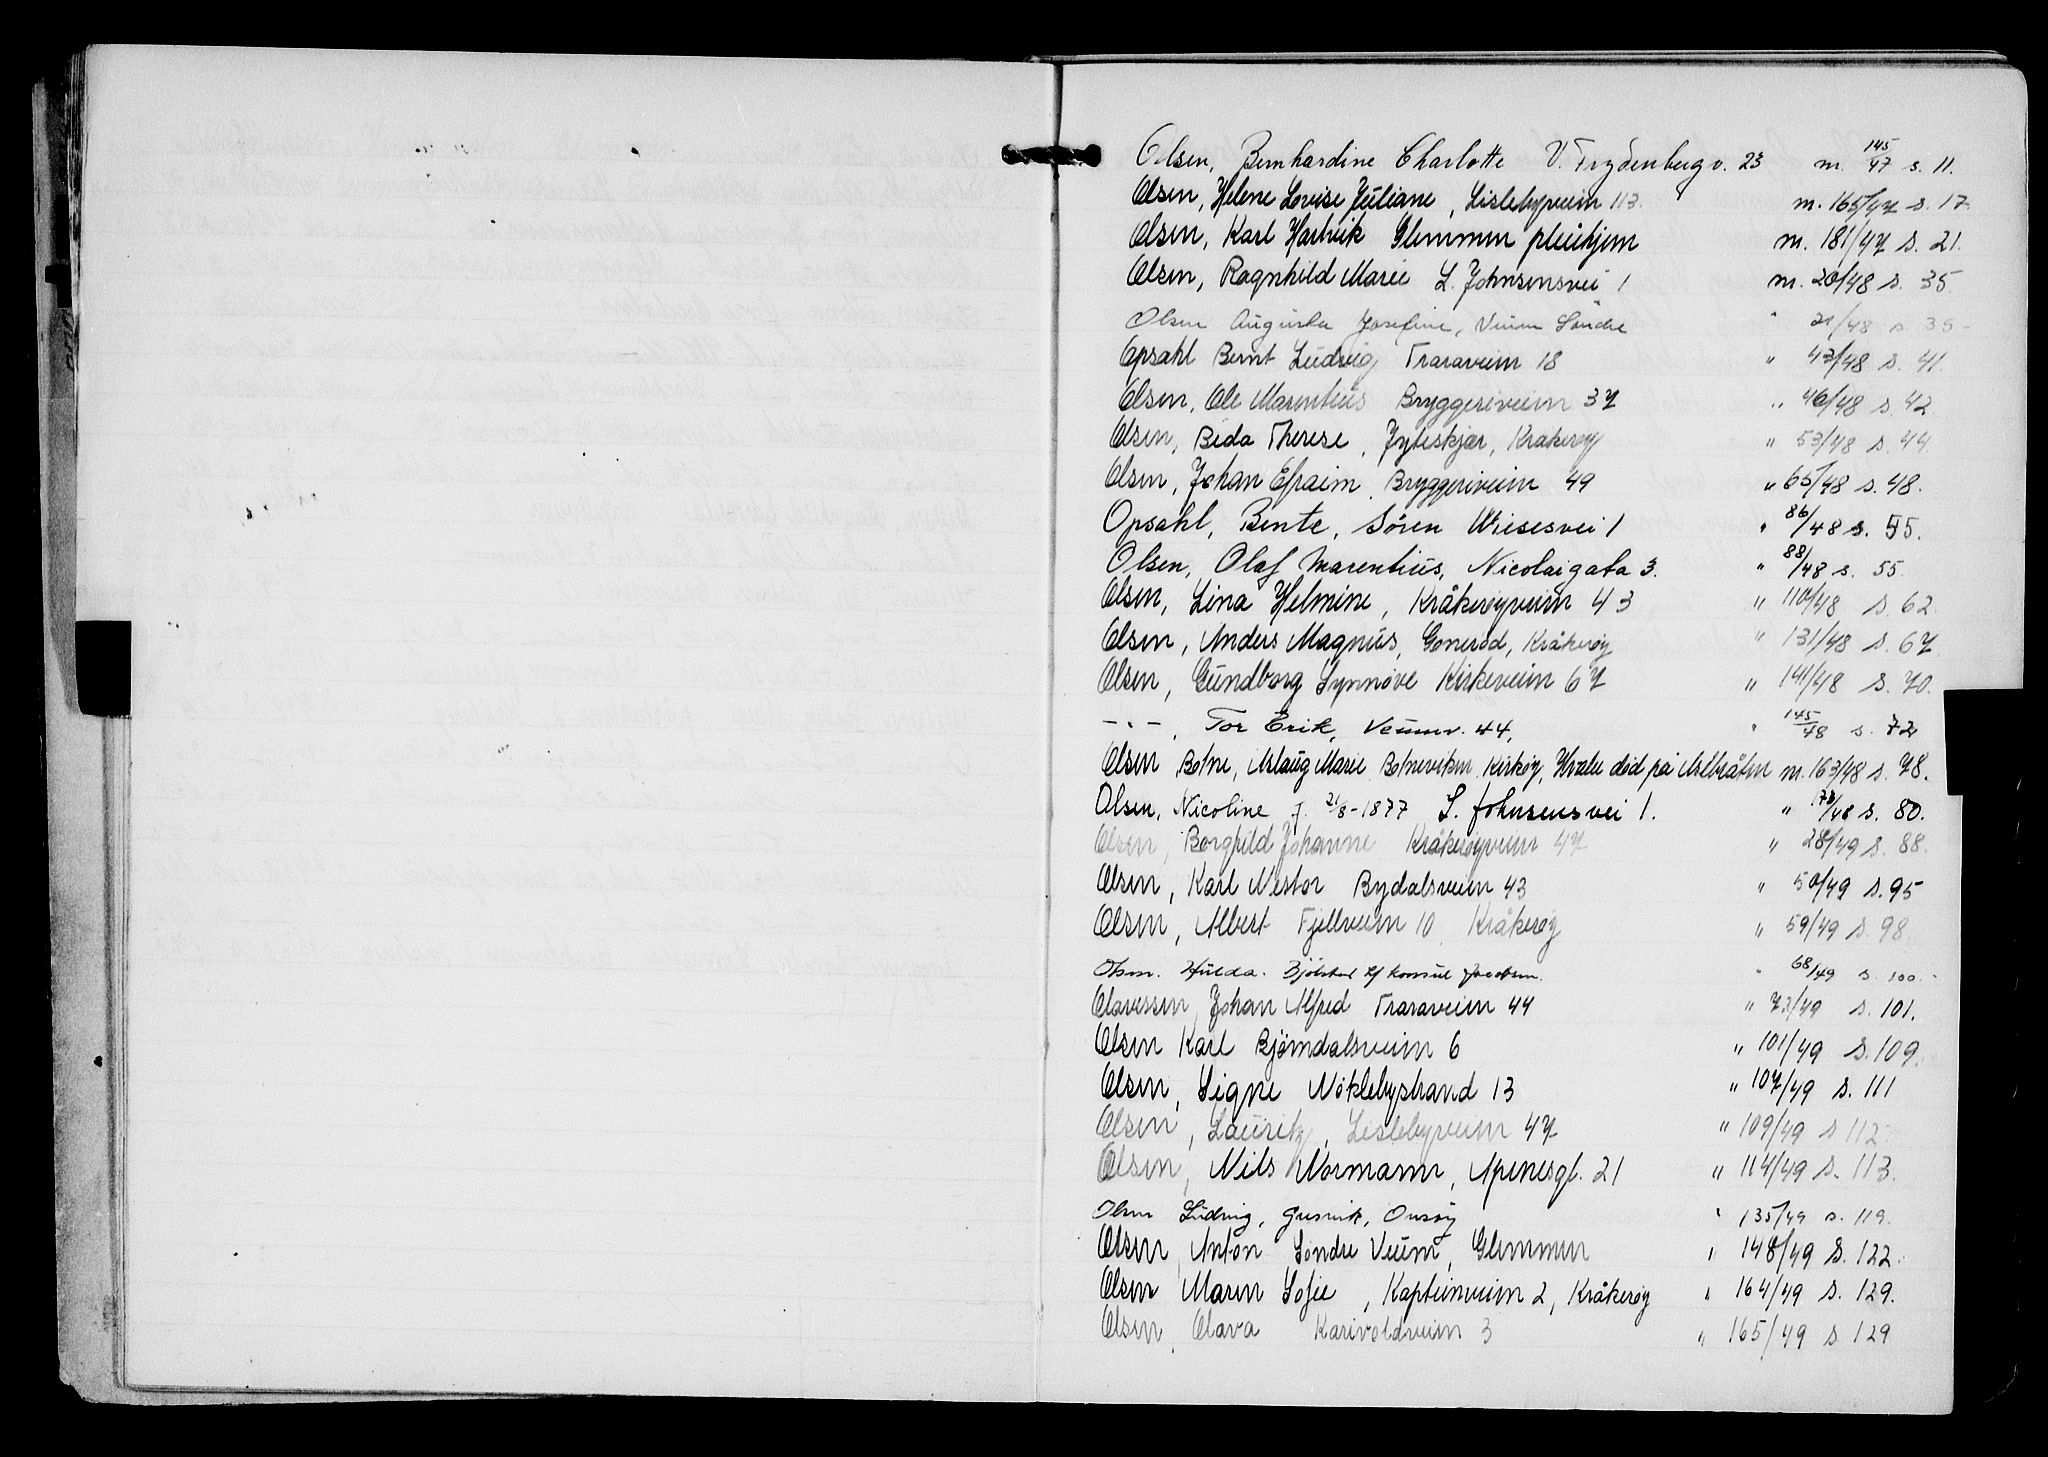 Olsen, Bernhardine Charlotte V. Frydenbergv. 23 m. 145/47 s. 11.
Olsen, Helene Lovise Juliane, Lislebyveien 113. m. 165/47 s. 17.
Olsen, Karl Hartvik Glemmen pleiehjem m. 181/47 s. 21.
Olsen, Ragnhild Marie L. Johnsensvei 1 m. 20/48 s. 35.
Olsen Augusta Josefine, Veum Søndre " 21/48 s 35-
Opsahl Bernt Ludvig Traraveien 18 " 43/48 s. 41.
Olsen, Ole Marentius Bryggeriveien 37 " 46/48 s. 42.
Olsen, Beda Therese, Kråkerøy " 53/48 s. 44.
Olsen, Johan Efraim, Bryggeriveien 49 " 65/48 s. 48.
Opsahl, Bente, Sören Wiesesvei 1 " 86/48 s. 55.
Olsen, Olaf Marentius, Nicolaigata 3. " 88/48 s. 55.
Olsen, Lina Helmine, Kråkerøyveien 43 " 110/48 s. 62.
Olsen, Anders Magnus, Goneröd, Kråkerøy " 131/48 s. 67
Olsen, Gundborg Synnøve Kirkeveien 67 " 141/48 s. 70.
-"-, Tor Erik, Veumv. 44, " 145/48 s. 72
Olsen Botne, Aslaug Marie Botneviken, Kirkøy, Hvaler død på m. 163/48 s. 78.
Olsen, Nicoline f. 21/8-1877 L. Johnsensvei 1. " 173/48 s. 80.
Olsen, Borghild Johanne Kråkerøyveien 47 " 28/49 s. 88.
Olsen, Karl Nestor Bydalsveien 43 " 50/49 s. 95
Olsen, Albert Fjellveien 10 Kråkerøy " 59/49 s. 98.
Olsen. Hulda. " 68/49 s. 100.-
Olavessen, Johan Alfred Traraveien 44 " 73/49 s. 101.
Olsen Karl Bjørndalsveien 6 " 101/49 s. 109.
Olsen, Signe Nøklebystrand 13 " 107/49 s. 111
Olsen, Lauritz, Lislebyveien 47 " 109/49 s 112
Olsen, Nils Normann, Apenesgt. 21 " 114/49 s. 113.
Olsen Ludvig, Gresvik, Onsøy " 135/49 s. 119.
Olsen, Anton Søndre Veum, Glemmen " 148/49 s. 122.
Olsen Maren Sofie, Kapteinveien 2, Kråkerøy " 164/49 s. 129.
Olsen, Olava Karivoldveien 3 " 165/49 s. 129